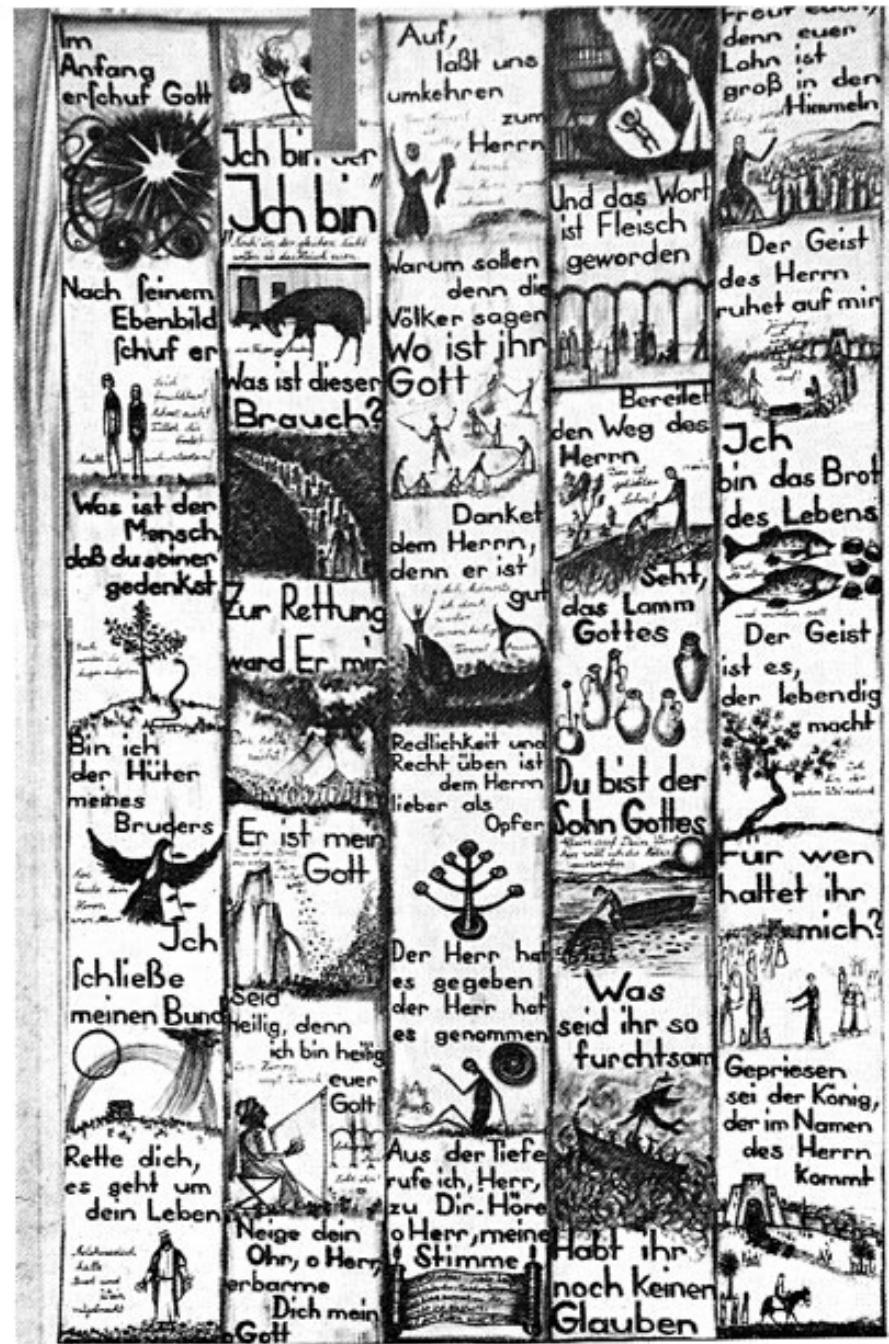 Im
Anfang
erschuf Gott
Nach seinem
Ebenbild
schuf er
Seid
fruchtbar!
Was ist der
Mensch,
daß du seiner
gedenkst
Bin ich
der Hüter
meines
Bruders
Ich
schließe
meinen Bund
Rette dich,
es geht um
dein Leben
Melchisedech
hatte
Brot und
Wein
Ich bin der
"Ich bin"
Was ist dieser
Brauch?
Zur Rettung
ward Er mir
Er ist mein
Gott
Seid
heilig, denn
ich bin heilig
euer
Gott
Neige dein
Ohr, o Herr,
erbarme
Dich mein
o Gott
Auf,
laßt uns
umkehren
zum
Herrn
Warum sollen
denn die
Völker sagen
Wo ist ihr
Gott
Danket
dem Herrn,
denn er ist
gut
Redlichkeit und
Recht üben ist
dem Herrn
lieber als
Opfer
Der Herr hat
es gegeben
der Herr hat
es genommen
Aus der Tiefe
rufe ich, Herr,
zu Dir. Höre
o Herr, meine
Stimme
Und das Wort
ist Fleisch
geworden
Bereitet
den Weg des
Herrn
Seht,
das Lamm
Gottes
Du bist der
Sohn Gottes
Was
seid ihr so
furchtsam
Habt ihr
noch keinen
Glauben
Freut euch,
denn euer
Lohn ist
groß in den
Himmeln
Der Geist
des Herrn
ruhet auf mir
Ich
bin das Brot
des Lebens
Der Geist
ist es,
der lebendig
macht
Ich
bin der
wahre Weinstock
Für wen
haltet ihr
mich?
Gepriesen
sei der König,
der im Namen
des Herrn
kommt